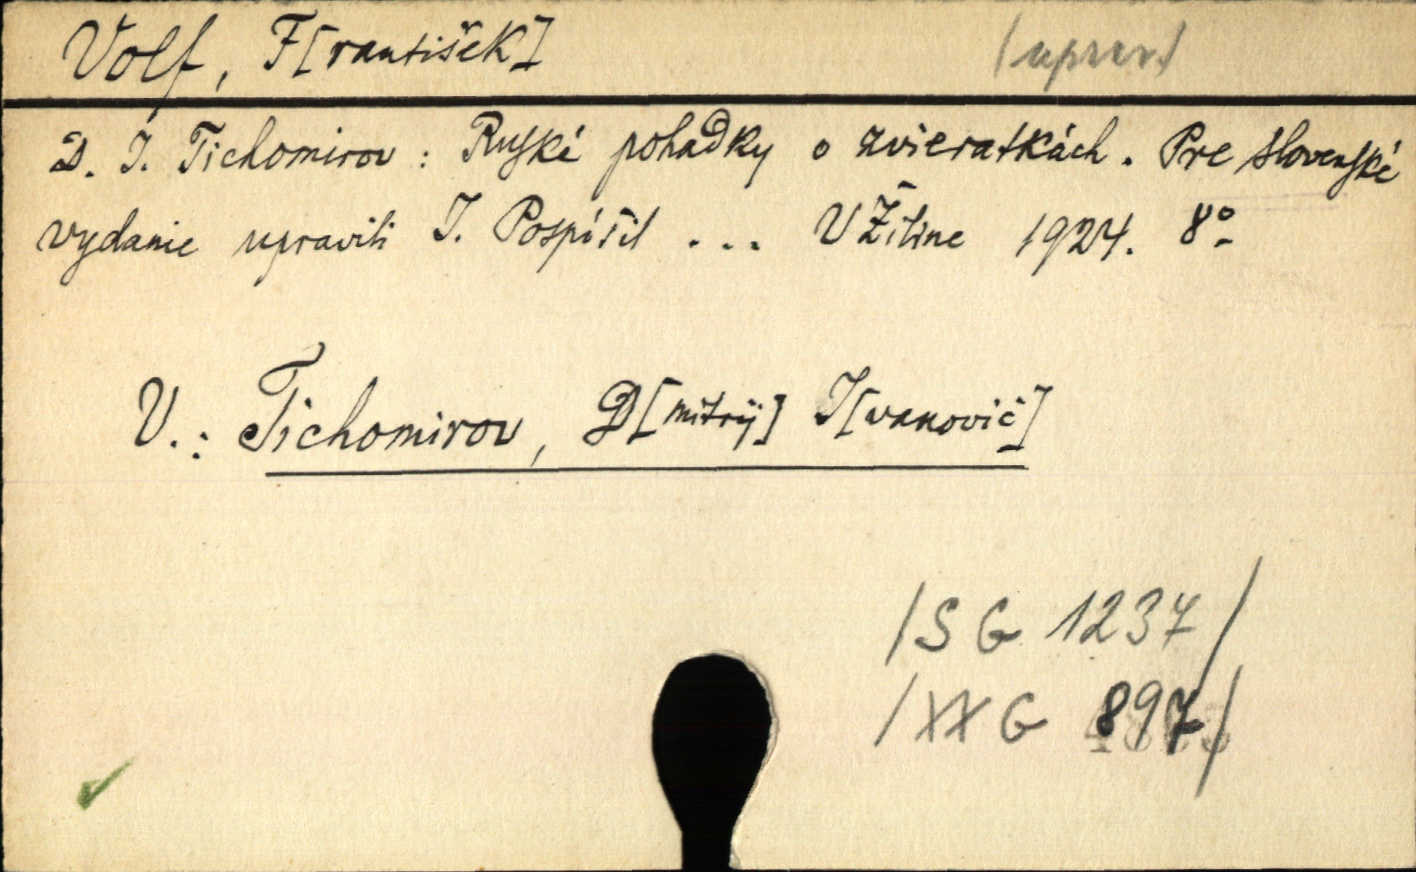 Volf, F[rantišek] /uprav./
D. I. Tichomirov: Ruské pohadky o zvieratkách. Pre slovenské
vydanie upravili I. Pospíšil ... V Žiline 1924. 8°
V.: Tichomirov, D[mitrij] I[vanovič]
/S G 1237/
/XX G 897/